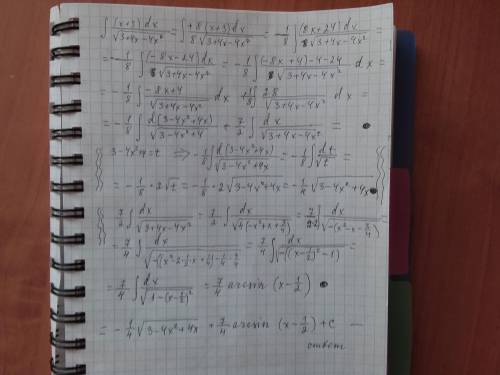 ∫ (x+3)dx / √(3+4x-4x²) = ∫ +8(x+3)dx / 8√(3+4x-4x²) = -1/8 ∫ (8x+24)dx / √(3+4x-4x²) =
= -1/8 ∫ (-8x-24)dx / √(3+4x-4x²) = -1/8 ∫ (-8x+4)-4-24 / √(3+4x-4x²) dx =
= -1/8 ∫ -8x+4 / √(3+4x-4x²) dx + 1/8 ∫ 28 / √(3+4x-4x²) dx =
= -1/8 ∫ d(3-4x²+4x) / √(3-4x²+4) + 7/2 ∫ dx / √(3+4x-4x²) =
3-4x²+4x=t ⇒ -1/8 ∫ d(3-4x²+4x) / √(3-4x²+4x) = -1/8 ∫ dt / √t =
= -1/8 · 2√t = -1/8 · 2√(3-4x²+4x) = -1/4 √(3-4x²+4x)
7/2 ∫ dx / √(3+4x-4x²) = 7/2 ∫ dx / √(4(-x²+x+3/4)) = 7/2·2 ∫ dx / √(-(x²-x-3/4)) =
= 7/4 ∫ dx / √(-((x²-2·1/2·x+1/4)-1/4-3/4)) = 7/4 ∫ dx / √(-((x-1/2)²-1)) =
= 7/4 ∫ dx / √(1-(x-1/2)²) = 7/4 arcsin (x-1/2)
= -1/4 √(3-4x²+4x) + 7/4 arcsin (x-1/2) + C —
ответ